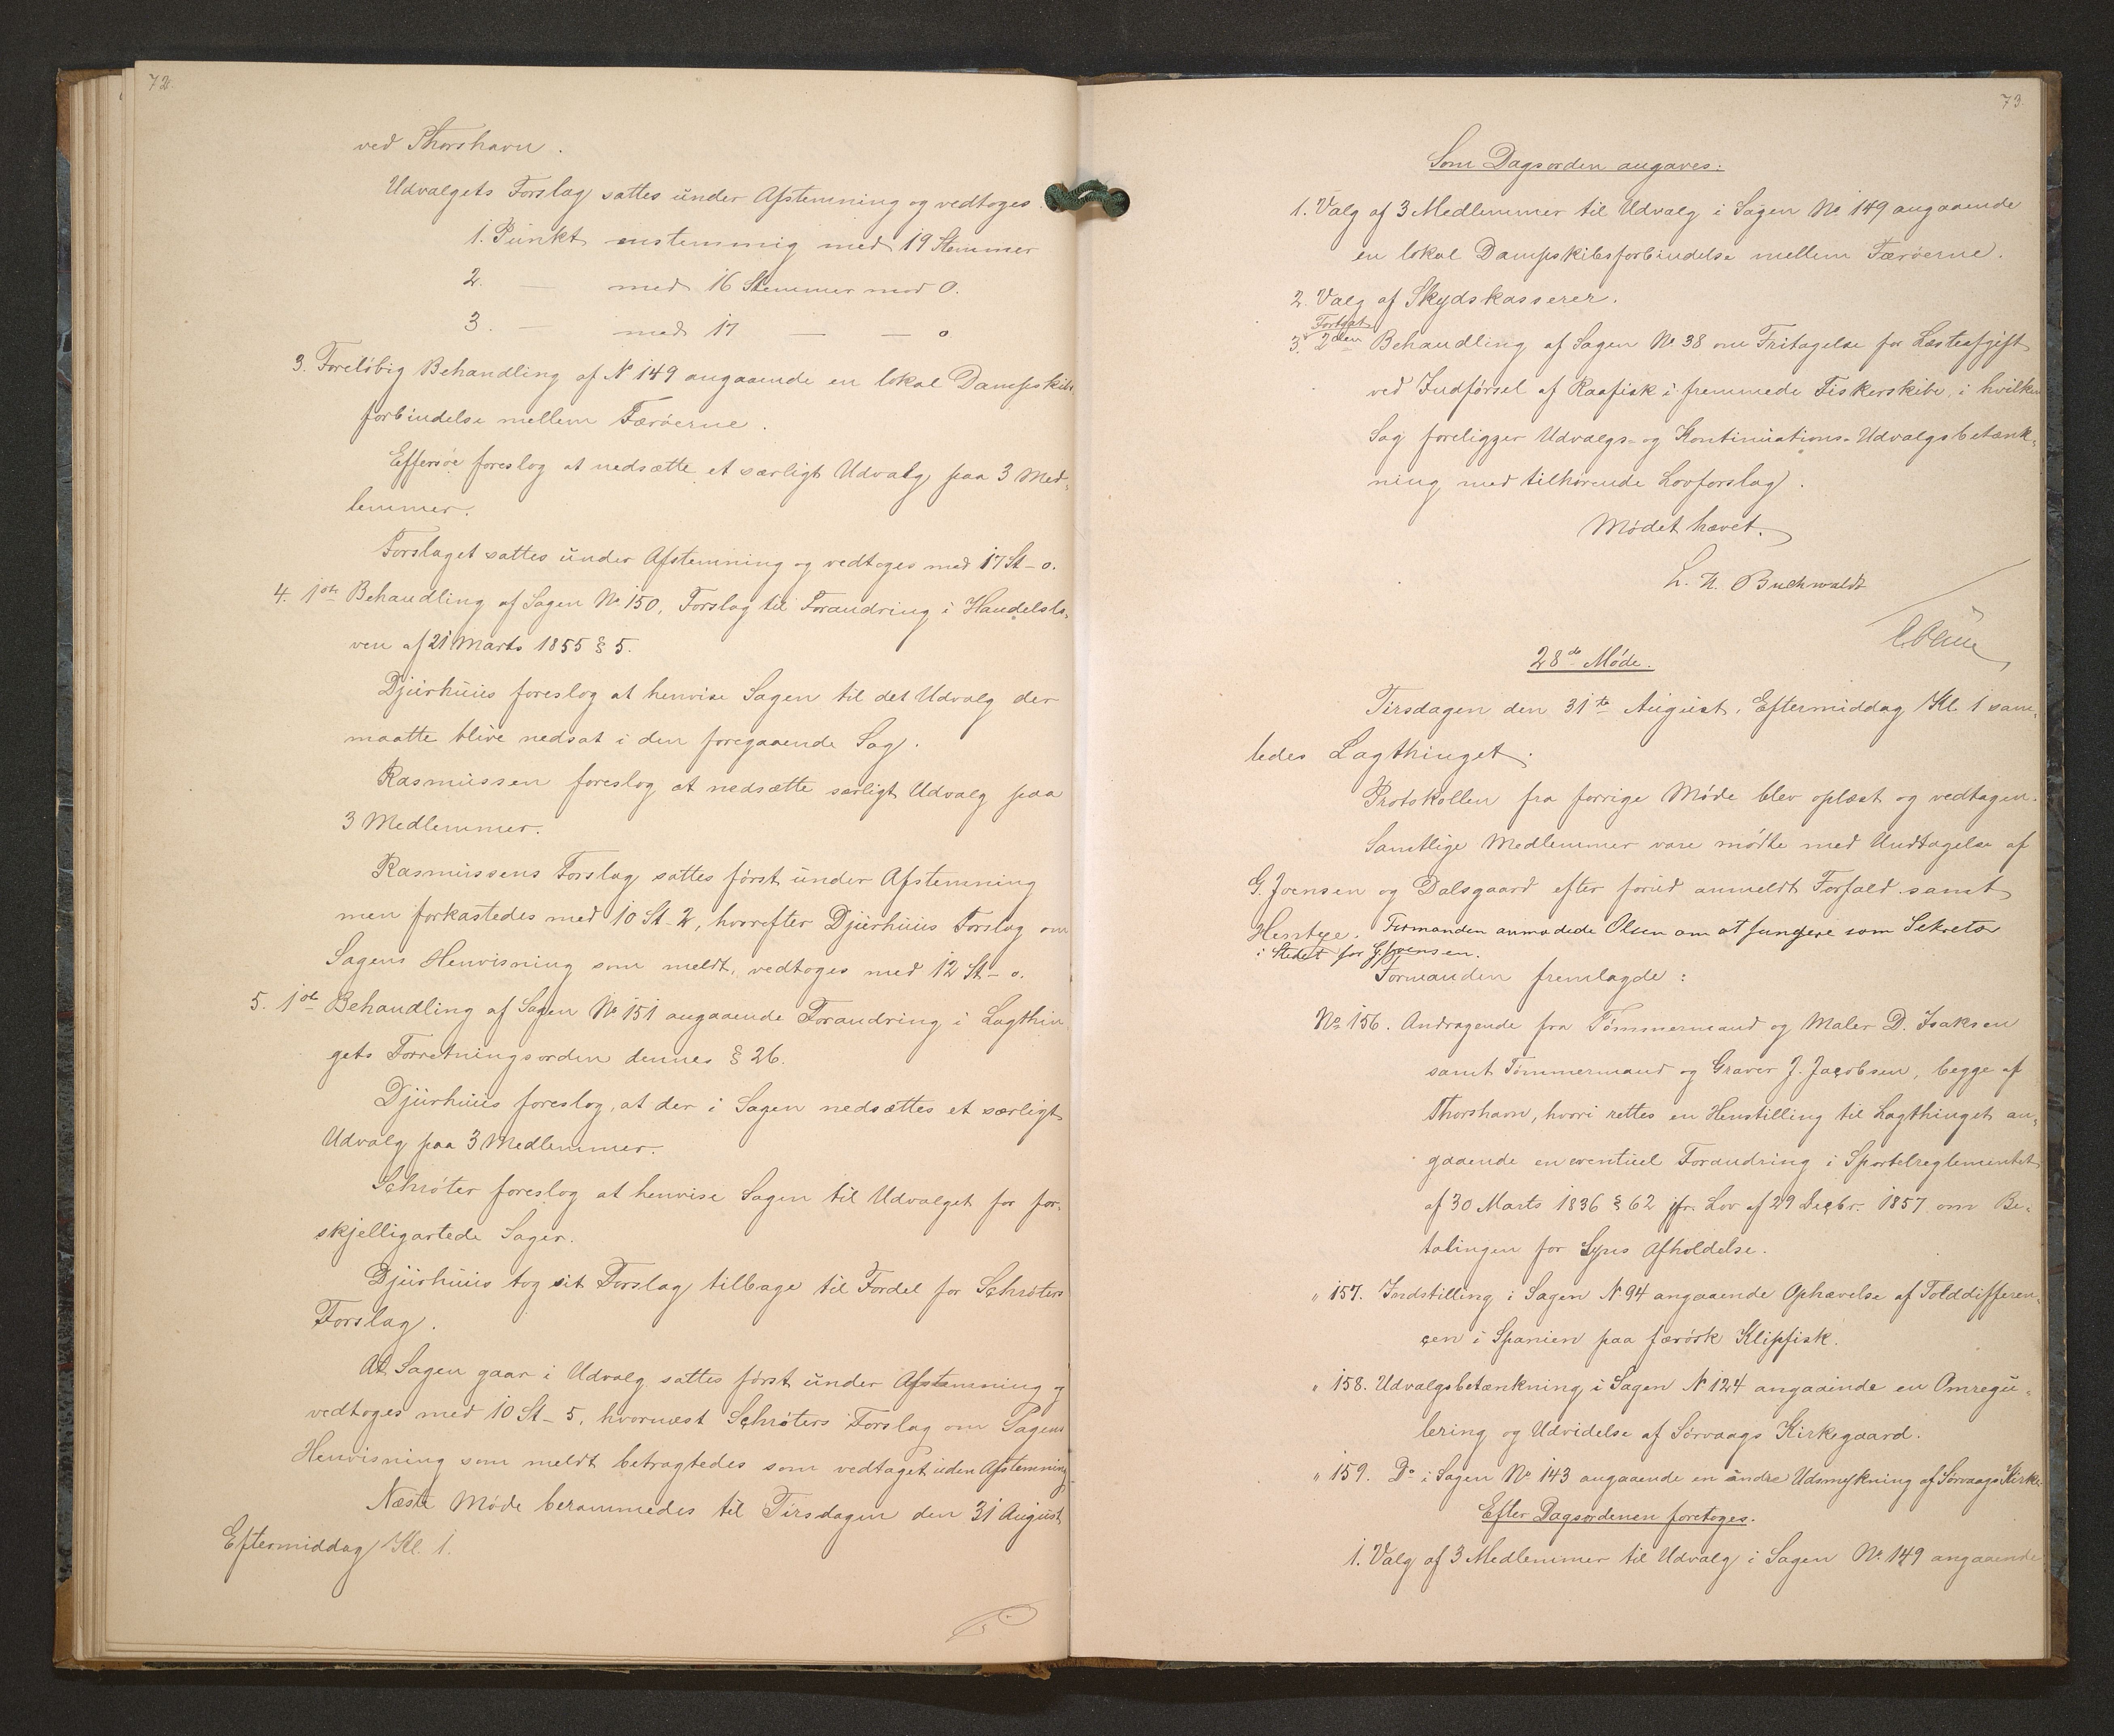 72.
ved Thorshavn.
Udvalgets Forslag sattes under Afstemning og vedtoges.
1. Punkt enstemmig med 19 Stemmer
2. — med 16 Stemmer mod 0.
3. — med 17 — — 0
3. Foreløbig Behandling af N 149 angaaende en lokal Dampskibs-
forbindelse mellem Færøerne.
Effersøe foreslog at nedsætte et særligt Udvalg paa 3 Med-
lemmer.
Forslaget sattes under Afstemning og vedtoges med 17 St - 0.
4. 1ste Behandling af Sagen No 150, Forslag til Forandring i Handelslo-
ven af 21 Marts 1855 § 5.
Djurhuus foreslog at henvise Sagen til det Udvalg der
maatte blive nedsat i den foregaaende Sag.
Rasmussen foreslog at nedsætte særligt Udvalg paa
3 Medlemmer.
Rasmussens Forslag sattes først under Afstemning
men forkastedes med 10 St - 2, hvorefter Djurhuus Forslag om
Sagens Henvisning som meldt, vedtoges med 12 St - 0.
5. 1ste Behandling af Sagen No 151 angaaende Forandring i Lagthin-
gets Forretningsorden dennes § 26.
Djurhuus foreslog, at der i Sagen nedsættes et særligt
Udvalg paa 3 Medlemmer.
Schrøter foreslog at henvise Sagen til Udvalget for for-
skjelligartede Sager.
Djurhuus tog sit Forslag tilbage til Fordel for Schrøters
Forslag.
At Sagen gaar i Udvalg sattes først under Afstemning og
vedtoges med 10 St - 5, hvornæst Schrøters Forslag om Sagens
Henvisning som meldt betragtedes som vedtaget uden Afstemning.
Næste Møde berammedes til Tirsdagen den 31 August
Eftermiddag Kl. 1.
73.
Som Dagsorden angaves:
1. Valg af 3 Medlemmer til Udvalg i Sagen No 149 angaaende
en lokal Dampskibsforbindelse mellem Færøerne.
2. Valg af Skydskasserer.
Fortsat
3. 2den Behandling af Sagen No 38 om Fritagelse for Læsteafgift
ved Indførsel af Raafisk i fremmede Fiskerskibe, i hvilken
Sag foreligger Udvalgs- og Kontinuations-Udvalgsbetænk-
ning med tilhørende Lovforslag.
Mødet hævet.
L. N. Buchwaldt
28de Møde.
Tirsdagen den 31te August, Eftermiddag Kl. 1 sam-
ledes Lagthinget.
Protokollen fra forrige Møde blev oplæst og vedtagen.
Samtlige Medlemmer vare mødte med Undtagelse af
G. Joensen og Dalsgaard efter forud anmeldt Forfald samt
Hentze. Formanden anmodede Olsen om at fungere som Sekretær
i Stedet for G. Joensen.
Formanden fremlagde:
No 156. Andragende fra Tømmermand og Maler D. Isaksen
samt Tømmermand og Graver J. Jacobsen, begge af
Thorshavn, hvori rettes en Henstilling til Lagthinget an-
gaaende en eventuel Forandring i Sportelreglementet
af 30 Marts 1836 § 62 jfr. Lov af 29 Decbr. 1857 om Be-
talingen for Syns Afholdelse.
" 157. Indstilling i Sagen N 94 angaaende Ophævelse af Tolddifferen-
cen i Spanien paa færøsk Klipfisk.
" 158. Udvalgsbetænkning i Sagen N 124 angaaende en Omregu-
lering og Udvidelse af Sørvaags Kirkegaard.
" 159. Do i Sagen No 143 angaaende en andre Udsmykning af Sørvaags Kirke.
Efter Dagsordenen foretoges.
1. Valg af 3 Medlemmer til Udvalg i Sagen No. 149 angaaende